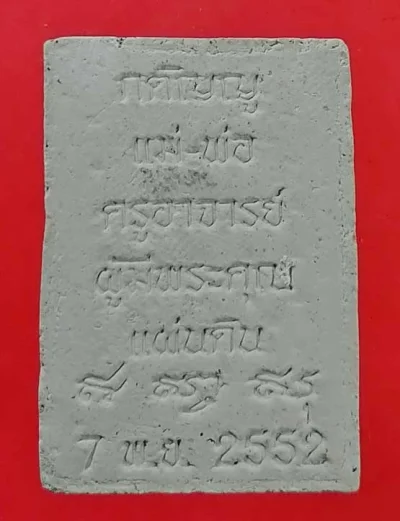 กตัญญู
แม่-พ่อ
ครูอาจารย์
ผู้มีพระคุณ
แผ่นดิน
7 พ.ย. 2552